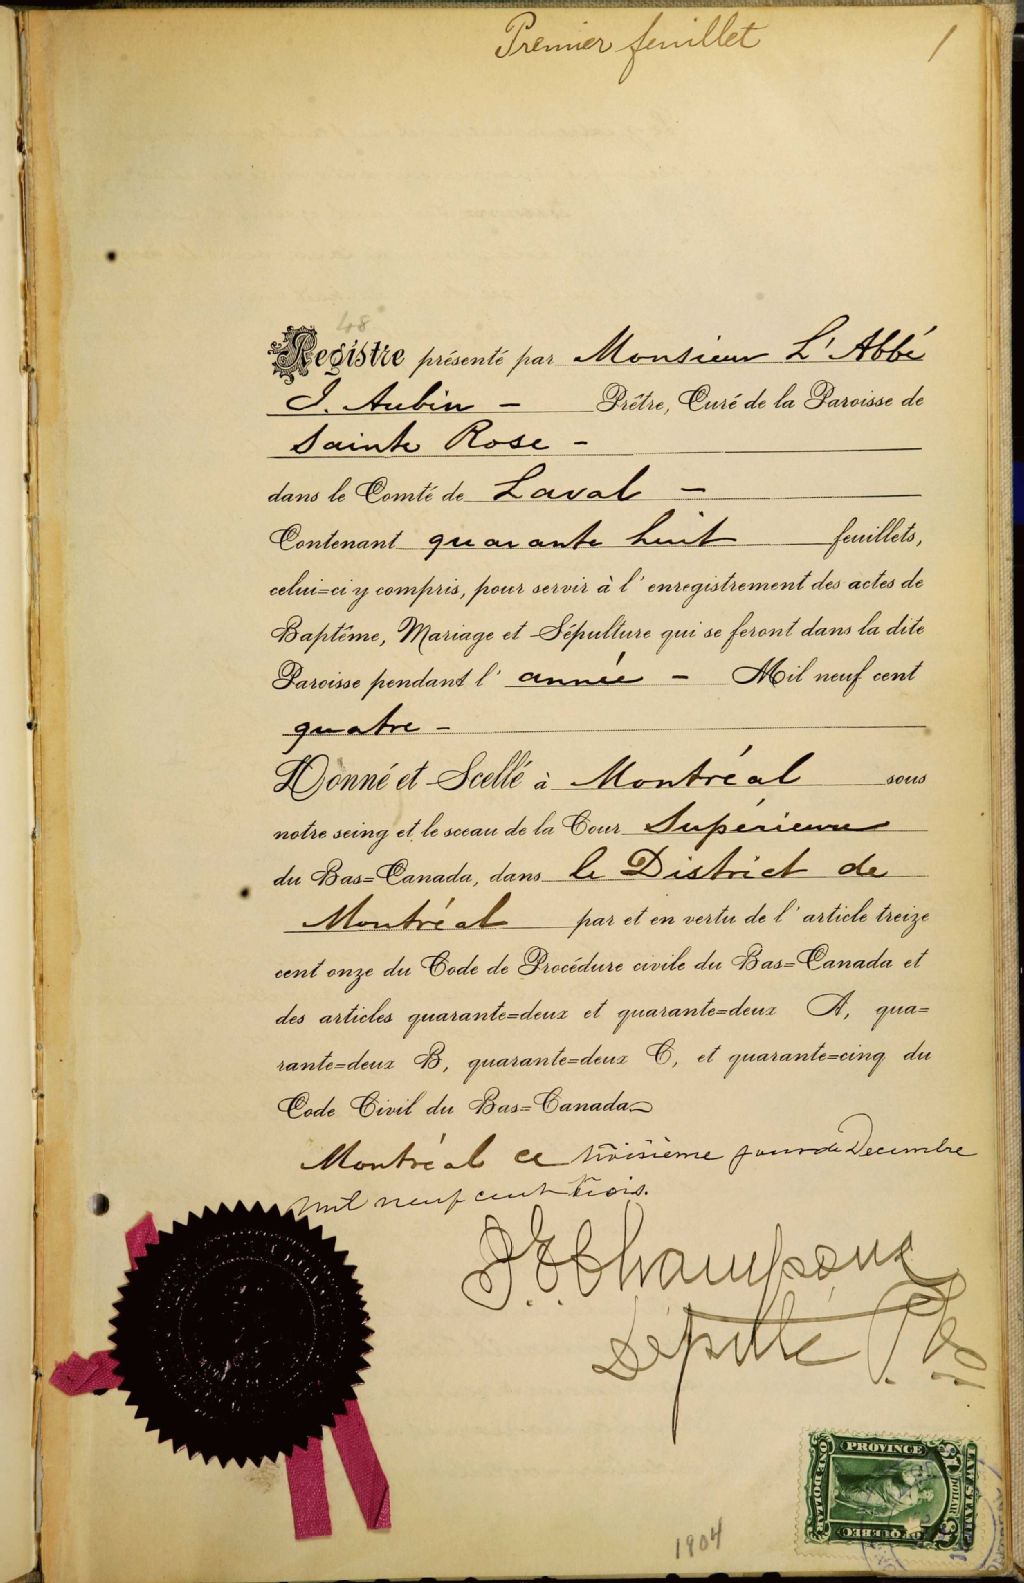 Premier feuillet 1
48
Registre présenté par Monsieur L'Abbé
J. Aubin - Prêtre, Curé de la Paroisse de
Sainte Rose -
dans le Comté de Laval -
Contenant quarante huit feuillets,
celui=ci y compris, pour servir à l'enregistrement des actes de
Baptême, Mariage et Sépulture qui se feront dans la dite
Paroisse pendant l'année - Mil neuf cent
quatre -
Donné et Scellé à Montréal sous
notre seing et le sceau de la Cour Supérieure
du Bas=Canada, dans le District de
Montréal par et en vertu de l'article treize
cent onze du Code de Procédure civile du Bas=Canada et
des articles quarante=deux et quarante=deux A, qua=
rante=deux B, quarante=deux C, et quarante=cinq du
Code Civil du Bas=Canada
Montréal ce troisième jour de Decembre
mil neuf cent trois.
Champoux
Député P.
PROVINCE
OF QUEBEC
ONE DOLLAR
LAW STAMP
$1 DOLLAR $1
1904